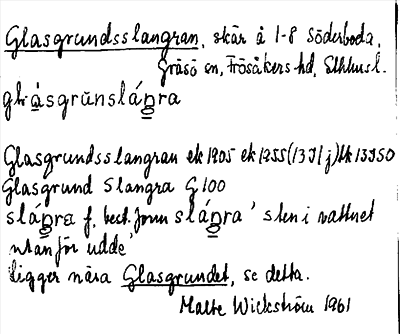 Glasgrundsslangran, skär å 1-8 Söderboda,
Gräsö sn, Frösåkers hd, Sthlms l.
glɑ̀sgrŭnslá̱ŋra
Glasgrundsslangran ek 1905 ek 1955 (13I 1j) tk 13950
Glasgrund Slangra G100
slá̱ŋra f. best. form slá̱ŋra ' sten i vattnet
utanför udde'
ligger nära Glasgrundet, se detta.
Malte Wickström 1961